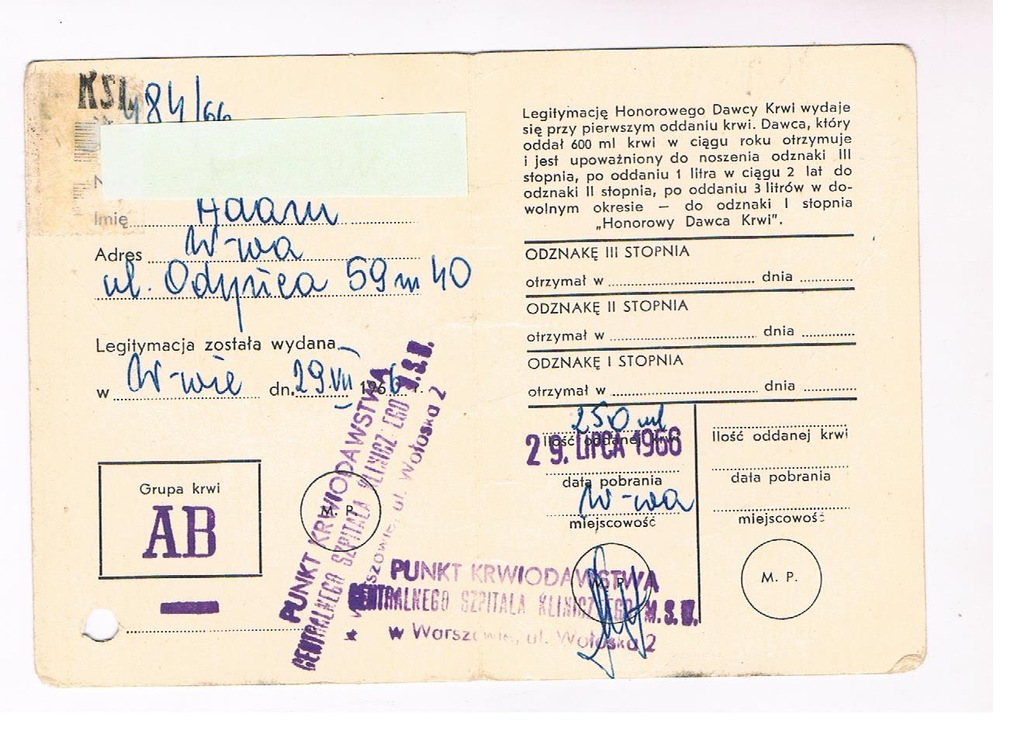 KSI 484/66
N
Imię Adam
Adres W-wa
ul. Odyńca 59 m 40
Legitymacja została wydana
w W-wie dn. 29 VII 1966 r.
Grupa krwi
AB
M. P.
PUNKT KRWIODAWSTWA
CENTRALNEGO SZPITALA KLINICZNEGO M.S.W.
w Warszowie, ul. Wołoska 2
Legitymację Honorowego Dawcy Krwi wydaje
się przy pierwszym oddaniu krwi. Dawca, który
oddał 600 ml krwi w ciągu roku otrzymuje
i jest upoważniony do noszenia odznaki III
stopnia, po oddaniu 1 litra w ciągu 2 lat do
odznaki II stopnia, po oddaniu 3 litrów w do-
wolnym okresie — do odznaki I stopnia
„Honorowy Dawca Krwi".
ODZNAKĘ III STOPNIA
otrzymał w dnia
ODZNAKĘ II STOPNIA
otrzymał w dnia
ODZNAKĘ I STOPNIA
otrzymał w dnia
250 ml
Ilość oddanej krwi
29. LIPCA 1966
data pobrania
W-wa
miejscowość
M. P.
PUNKT KRWIODAWSTWA
CENTRALNEGO SZPITALA KLINICZNEGO M.S.W.
w Warszowie, ul. Wołoska 2
Ilość oddanej krwi
data pobrania
miejscowość
M. P.